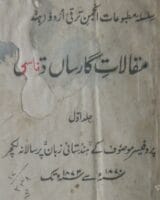 سلسلہ مطبوعات انجمن ترقی اردو ہند
مقالات گارساں دتاسی
جلد اول
پروفیسر موصوف کے ہندستانی زبان پر سالانہ لکچر
۱۸۷۰ء سے ۱۸۷۳ء تک